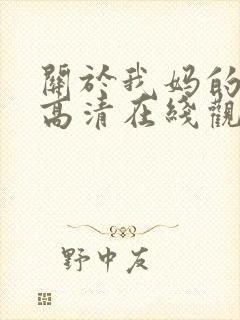 關於我妈的
高清在綫觀
野中友